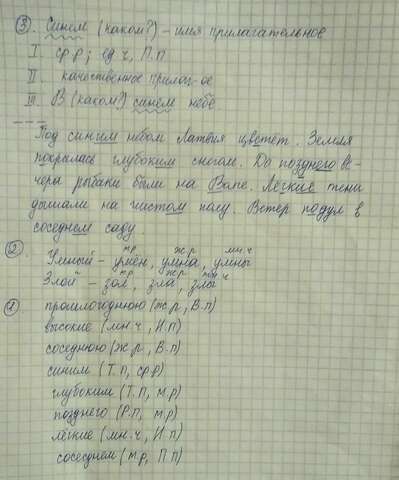 3. Синем (каком?) – имя прилагательное
I. ср.р; ед.ч, П.п
II. качественное прилаг-ое
III. В (каком?) синем небе
Под синим небом Латвия цветёт. Земля
покрылась глубоким снегом. До позднего ве-
чера рыбаки были на
Лёгкие тени
на чистом полу. Ветер подул в
соседнем саду.
2. Умный – умён, умна, умны
м.р ж.р мн.ч
Злой – зол, зла, злы
м.р ж.р мн.ч
1 прошлогоднюю (ж.р, В.п)
высокие (мн.ч, И.п)
соседнюю (ж.р, В.п)
синим (Т.п, ср.р)
глубоким (Т.п, м.р)
позднего (Р.п, м.р)
лёгкие (мн.ч, И.п)
соседнем (м.р, П.п)